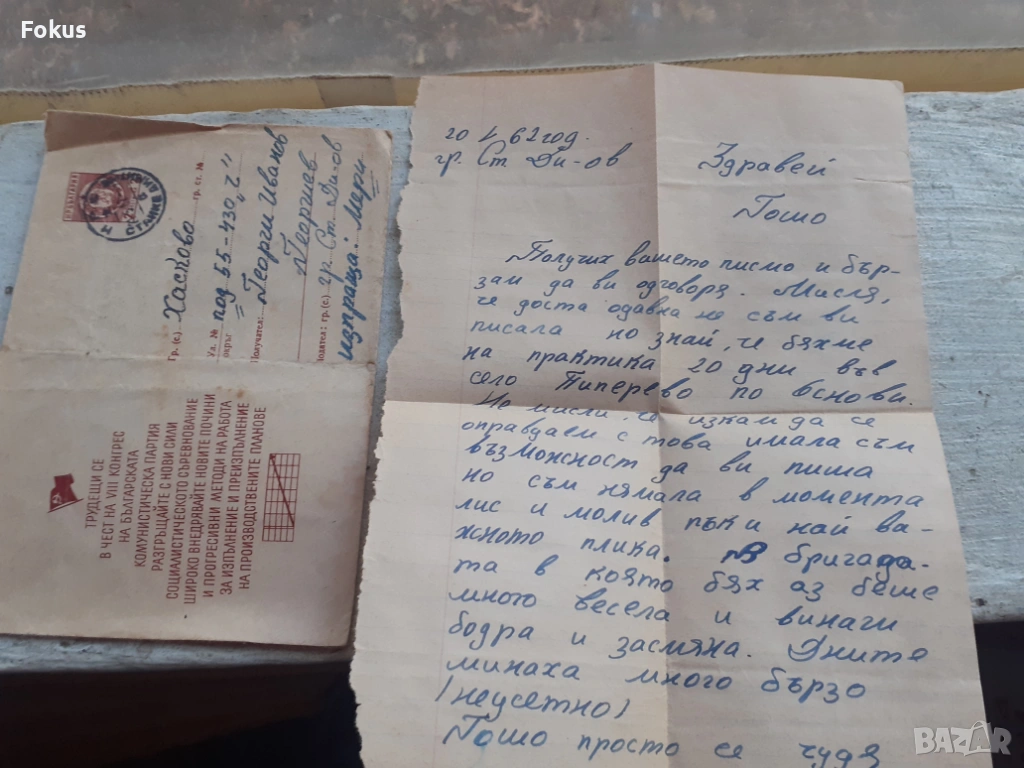 Fokus
гр. (с.) Хасково гр. ст. №
Ул. № под 55-430 "г"
Получател: Георги Иванов
Георгиев
гр. (с.) гр. Ст Ди-ов
изпраща: Мери
ТРУДЕЩИ СЕ
В ЧЕСТ НА VIII КОНГРЕС
НА БЪЛГАРСКАТА
КОМУНИСТИЧЕСКА ПАРТИЯ
РАЗГРЪЩАЙТЕ С НОВИ СИЛИ
СОЦИАЛИСТИЧЕСКОТО СЪРЕВНОВАНИЕ
ШИРОКО ВНЕДРЯВАЙТЕ НОВИТЕ ПОЧИНИ
И ПРОГРЕСИВНИ МЕТОДИ НА РАБОТА
ЗА ИЗПЪЛНЕНИЕ И ПРЕИЗПЪЛНЕНИЕ
НА ПРОИЗВОДСТВЕНИТЕ ПЛАНОВЕ
62 год.
гр. Ст Ди-ов
Здравей
Гошо
Получих вашето писмо и бър-
зам да ви одговоря. Мисля,
че доста одавна не съм ви
писала но знай, че бяхме
на практика 20 дни във
село Пиперево по Основи.
Не мисли, че искам да се
оправдаем с това имала съм
възможност да ви пиша
но съм нямала в момента
лис и молив пък и най ва-
жното плика. В бригада-
та в която бях аз беше
много весела и винаги
бодра и засмяна. Дните
минаха много бързо
(неусетно)
Гошо просто се чудя
BAZAR